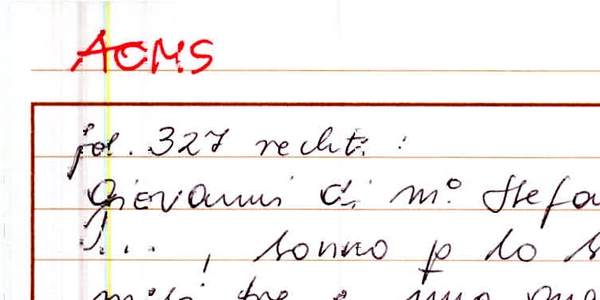 ACMS
fol. 327 recht. :
Giovanni di m.° Stefa
J... , sonno p lo s